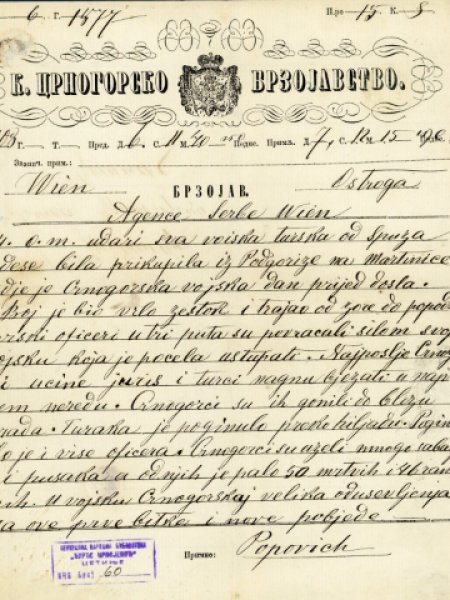 6 Г. 1877 П.ро 15 К. 8
К. ЦРНОГОРСКО БРЗОЈАВСТВО.
Г. Т. Пред. Д. 6 С. 11 М. 20 Подне. Примљ. Д. 7, С. 12 М. 15
Назнач. прим.:
Wien БРЗОЈАВ. Ostroga
Agence Serbe Wien
4. o. m. udari sva vojska turska od Spuza
dese bila prikupila iz Podgorize na Martinice
dje je Crnogorska vojska dan prijed dosla.
Boj je bio vrlo zestok i trajao od zore do popod
turski oficeri u tri puta su povracali silom svoj
vojsku koja je pocela ustupati. Najposlje Crnog
i ucine juris i turci nagnu bjezati u najv
em neredu. Crnogorci su ih gonili do blizu
grada. Turaka je poginulo preko hiljadu. Pogin
o je i vise oficera. Crnogorci su uzeli mnogo saba
i pusaka a od njih je palo 50 mrtvih i 46 ran
ih. U vojsku Crnogorskoj velika odusevljenja
za ove prve bitke i nove pobjede
Примио: Popovich
ЦЕНТРАЛНА НАРОДНА БИБЛИОТЕКА
ЦЕТИЊЕ
60